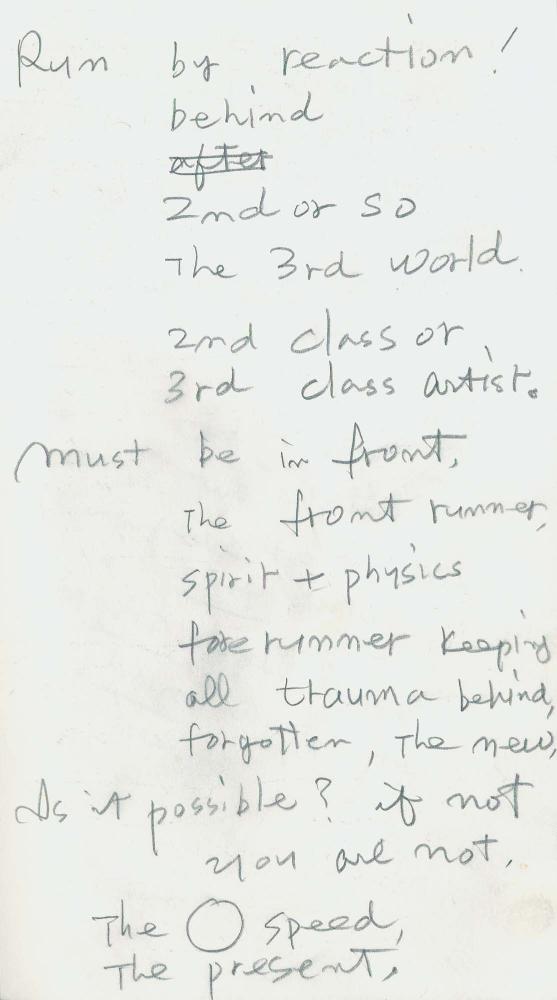 Run by reaction!
behind
after
2nd or so
The 3rd world.
2nd class or
3rd class artist.
must be in front,
The front runner,
spirit + physics
fore runner keeping
all trauma behind,
forgotten, The new,
Is it possible? if not
you are not.
The ◯ speed,
The present,